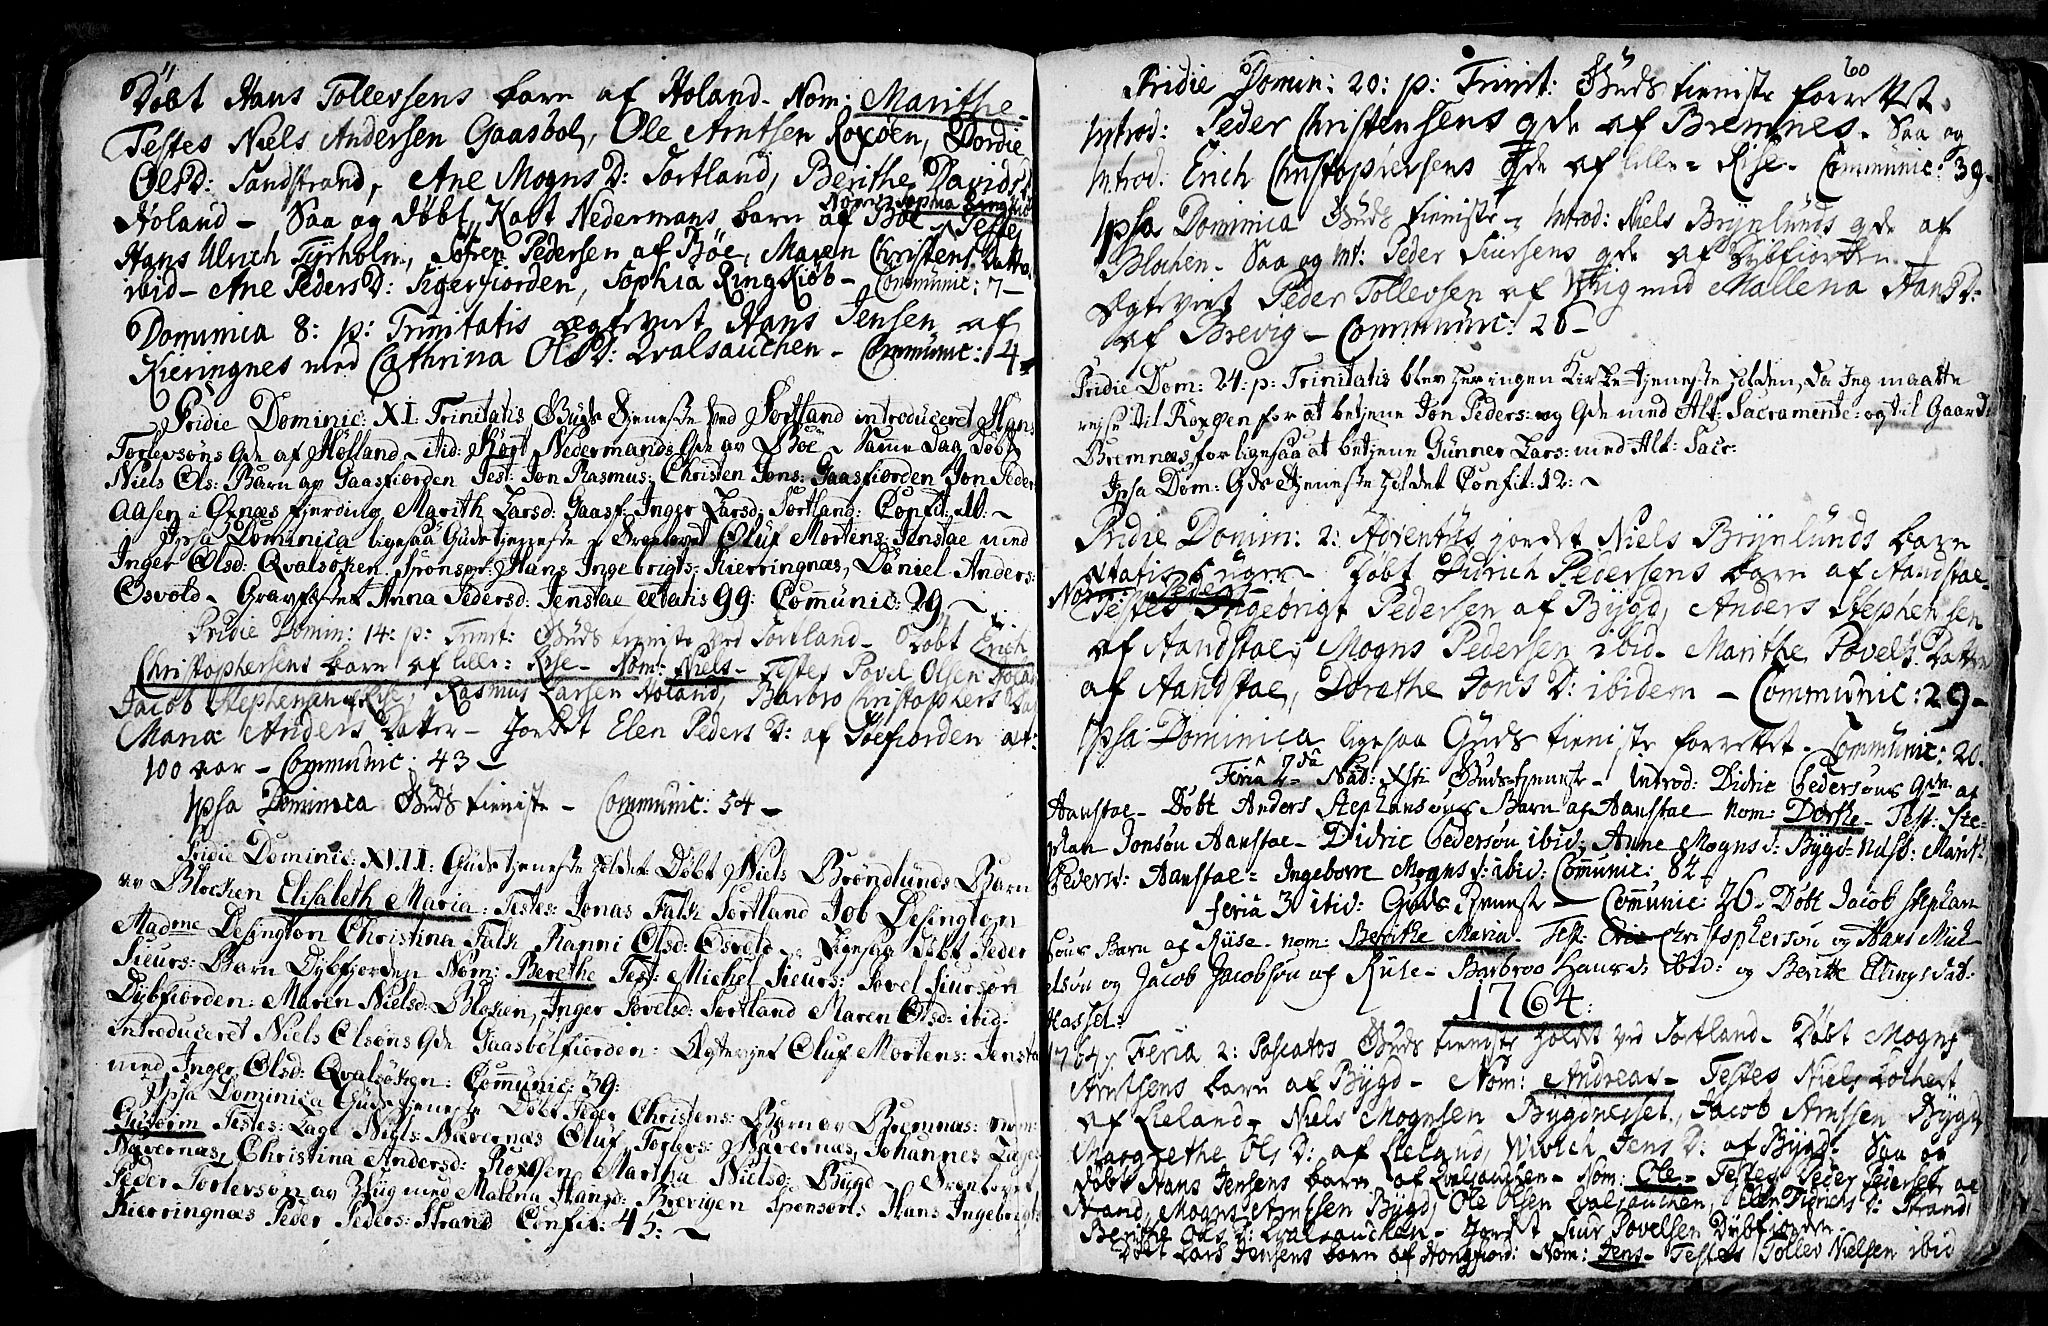 Døbt Hans Tollersens barn af Holand. Nom: Marithe
Testes Niels Andersen Gaasbøl, Ole Arntsen Roxøen, Dordie
OlsD: Sandstrand, Ane MognsD: Sortland, Berithe DavidsD
Nom: Sophia Ringkiøb
Holand – Saa og døbt Kort Nedermans barn af Bøe – Testes
Hans Ulrich Tyrholm, Søfren Pedersen af Bøe, Maren Christens Datter
ibid – Ane PedersD: Sigerfiorden, Sophia Ringkiøb – Communic: 7 –
Dominica 8: p: Trinitatis ægteviet Hans Jensen af
Kieringnes med Cathrina OlsD: Qvalsauchen – Communic: 14
Pridie Dominic: XI Trinitatis Guds Tjeneste ved Sortland introduceret Hans
Torlevsøns Qde af Høfland – itid: Kort Nedermands Qde av Bøe – Samme Dag Døbt
Niels Ols: Barn av Gaasfiorden Test: Jon Rasmus: Christen Jons: Gaasfjorden Jon Peder
Aasen i Øxnæs fjerding Marith Larsd: Gaasf: Inger Larsd: Sortland: Confit: 10: ~
Ipsa Dominica ligesaa Gudstjeneste – Oluf Mortens: Jenstae med
Inger Olsd: Qvalsøken. Sponsor: Hans Ingebrigts: Kierringnæs, Daniel Anders:
Osvold – Gravfæstet Anna Pedersd: Jenstae ætatis 99: Communic: 29 ~
Pridie Domin: 14: p: Trinit: Guds tieniste ved Sortland – Døbt Erich
Christophersens barn af lille: Rise – Nom: Niels – Testes Povel Olsen Holand
Jacob Stephensen Rise, Rasmus Larsen Holand, Barbro Christophers Dat
Maria Anders Datter – Jordet Elen PedersD: af Godfiorden æt:
100 aar – Communic: 43 –
Ipsa Dominica Guds tieniste – Communic: 54 –
Pridie Dominic: XVII: Guds tjeneste holdet Døbt Niels Brøndlunds Barn
av Blocken Elisabeth Maria: Testes: Jonas Falk Sortland Job Desington
Madme Desington Christina Falk Ranni Olsd: Osvold – Ligesaa Døbt Peder
Siurs: Barn Dybfjorden Nom: Berethe Test: Michel Siurs: Povel Siursøn
Dybfiorden: Maren Nielsd: Bloken, Inger Povelsd: Sortland Maren Olsd: ibid.
introduceret Niels Olsøns Qde Gaasbølfiorden: Ægteviet Oluf Mortens: Jensta
med Inger Olsd: Qvalsøken: Communic: 39:
Ipsa Dominica Gudstjeneste Døbt Peder Christens: Barn av Bremnæs: nom:
Gutorm Testes: Lage Niels: Navernæs Oluf Torlers: Navernæs, Johannes Lages:
Navernæs, Christina Andersd: Roxøen Martha Nielsd: Bygd –
Peder Torlevsøn av Wiig med Malena Hansd: Brevigen Sponsorl: Hans Ingebrigts
Kierringnæs Peder Peders: Strand Confit: 45: ~
60
Pridie Domin: 20: p: Trinit: Guds tieniste forrettet.
Introd: Peder Christensens qde af Bremnes. Saa og
Introd: Erich Christophersens qde af lille Rise – Communic: 39 –
Ipsa Dominica Guds tieniste – Introd: Niels Brynlunds qde af
Blochen – Saa og int: Peder Siursens qde af Dybfiorden –
Ægteviet Peder Tollersen af Wiig med Mallena HansD:
af Brevig – Communic: 26 –
Pridie Dom: 24: p: Trinitatis blev her ingen Kirke-tjeneste holden, da Jeg maatte
rejse til Roxøen for at betjene Jon Peders: og Qde med Alt: Sacramente: og til Gaarden
Bremnæs for ligesaa at betjene Gunner Lars: med Alt: Sacr:
Ipsa Dom: Gds tjeneste holdet Confit: 12: ~
Pridie Domin: 2: Adventus jordet Niels Brynlunds barn
ætatis uger – Døbt Didrich Pedersens barn af Aandstae –
Nom: Peder
Testes Ingebrigt Pedersen af Bygd, Anders Stephensen
af Aandstae, Mogns Pedersen ibid – Marithe Povels Datter
af Aandstae, Dorethe JonsD: ibidem – Communic: 29 –
Ipsa Dominica ligesaa Guds tieniste forrettet – Communic: 20.
Feria 2da Nad: Xsti Guds-tjeneste – Introd: Didric Pedersøns Qde af
Aanstae – Døbt Anders Stephansøns Barn af Aanstae nom: Dorthe – Test: Ste-
phan Jonsøn Aanstae – Didric Pedersøn ibid: Anne Mognsd: Bygd: Marit:
Pedersd: Aanstae – Ingeborre Mognsd: ibid: Communic: 82 –
Feria 3 itid: Guds Tjeneste – Communic: 26 – Døbt Jacob Stephan
søns Barn af Riise – nom: Berithe Maria – Test: Eric Christophersøn og Hans Mich
elsøn og Jacob Jacobsøn af Riise – Barbroe Hansd: ibid: og Beritte Ellingsdad:
Hassel:
1764:
1764: Feria 2: Pascatos Guds tieniste holdet ved Sortland – Døbt Mogns
Arntsens barn af Bygd – Nom: Andreas – Testes Niels Lochert
af Leland – Niels Mognsen Bygdnesset, Jacob Arntsen Bygd,
Margrethe OlsD: af Leland, Wivich JensD: af Bygd – Saa og
døbt Hans Jensens barn af Qvalsauchen – Nom: Ole – Testes Peder Pedersen af
Strand, Mogns Arntsen Bygd, Ole Olsen Qvalsauchen, Elen DidrichsD: Strand,
Berithe OlsD: Qvalsauchen – Jordet Siur Povelsen Dybfiorden –
Døbt Lars Jensens barn af Hongfiord: Nom: Jens – Testes Tollev Nielsen ibid